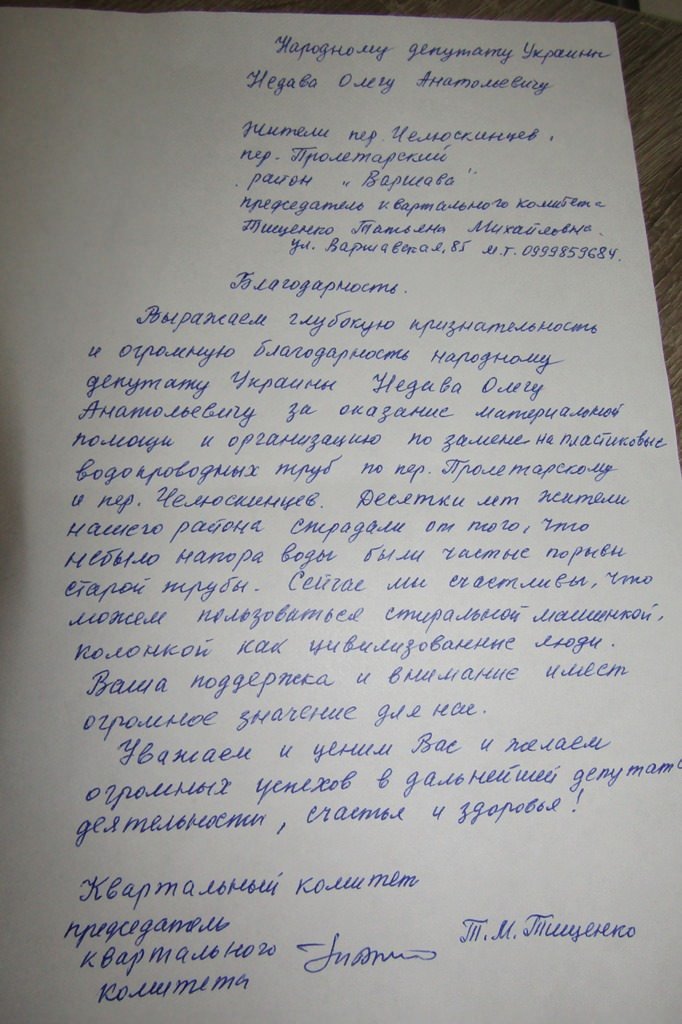 Народному депутату Украины
Недава Олегу Анатольевичу
Жители пер. Челюскинцев,
пер. Пролетарский
район „Варшава"
председатель квартального комитета
Тищенко Татьяна Михайловна.
ул. Варшавская, 85 м.т. 0999859684.
Благодарность.
Выражаем глубокую признательность
и огромную благодарность народному
депутату Украины Недава Олегу
Анатольевичу за оказание материальной
помощи и организацию по замене на пластиковые
водопроводных труб по пер. Пролетарскому
и пер. Челюскинцев. Десятки лет жители
нашего района страдали от того, что
небыло напора воды были частые порывы
старой трубы. Сейчас мы счастливы, что
можем пользоваться стиральной машинкой,
колонкой как цивилизованные люди.
Ваша поддержка и внимание имеет
огромное значение для нас.
Уважаем и ценим Вас и желаем
огромных успехов в дальнейшей депутатс
деятельности, счастья и здоровья!
Квартальный комитет
председатель
квартального Т.М. Тищенко
комитета